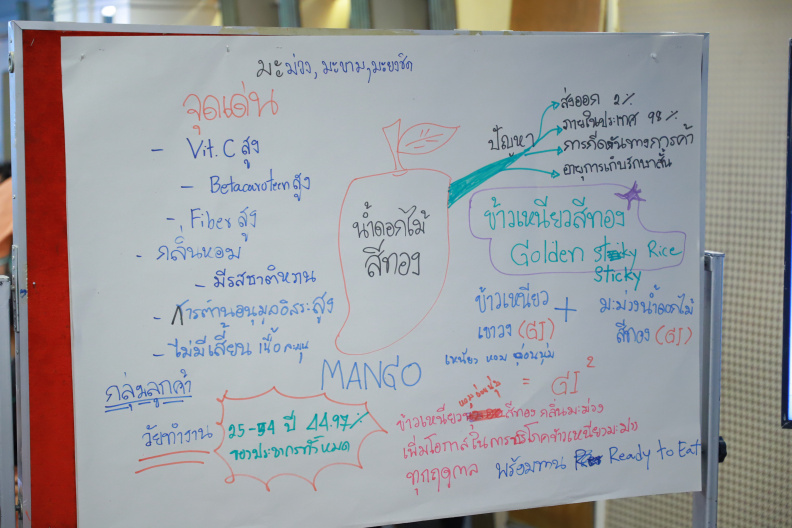 มะม่วง, มะขาม, มะยงชิด
จุดเด่น
- Vit. C สูง
- Betacarotein สูง
- Fiber สูง
- กลิ่นหอม
- มีรสชาติหวาน
- การต้านอนุมูลอิสระสูง
- ไม่มีเสี้ยน เนื้อละมุน
กลุ่มลูกค้า
วัยทำงาน
25-54 ปี 44.97%
ของประชากรทั้งหมด
น้ำดอกไม้
สีทอง
MANGO
ปัญหา
ส่งออก 2%
ภายในประเทศ 98%
การกีดกันทางการค้า
อายุการเก็บรักษาสั้น
ข้าวเหนียวสีทอง
Golden Rice
Sticky
ข้าวเหนียว
เขาวง (GI)
เหนียว หอม อ่อนนุ่ม
+
มะม่วงน้ำดอกไม้
สีทอง (GI)
= GI²
หอมอ่อนนุ่ม
ข้าวเหนียว สีทอง กลิ่นมะม่วง
เพิ่มโอกาสในการบริโภคข้าวเหนียวมะม่วง
ทุกฤดูกาล พร้อมทาน Ready to Eat